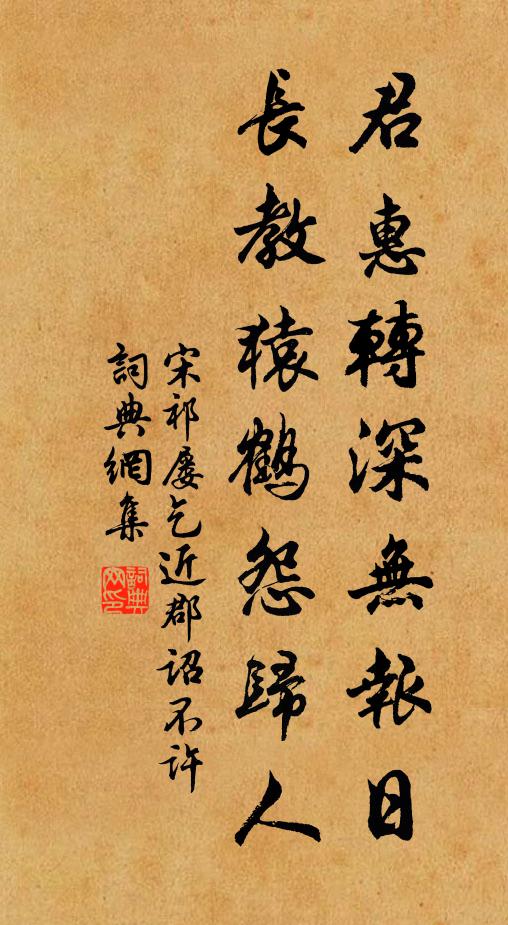 君惠轉深無報日
長教猿鶴怨歸人
宋祁屡乞近郡詔不许
詞典網集
詞典
网印